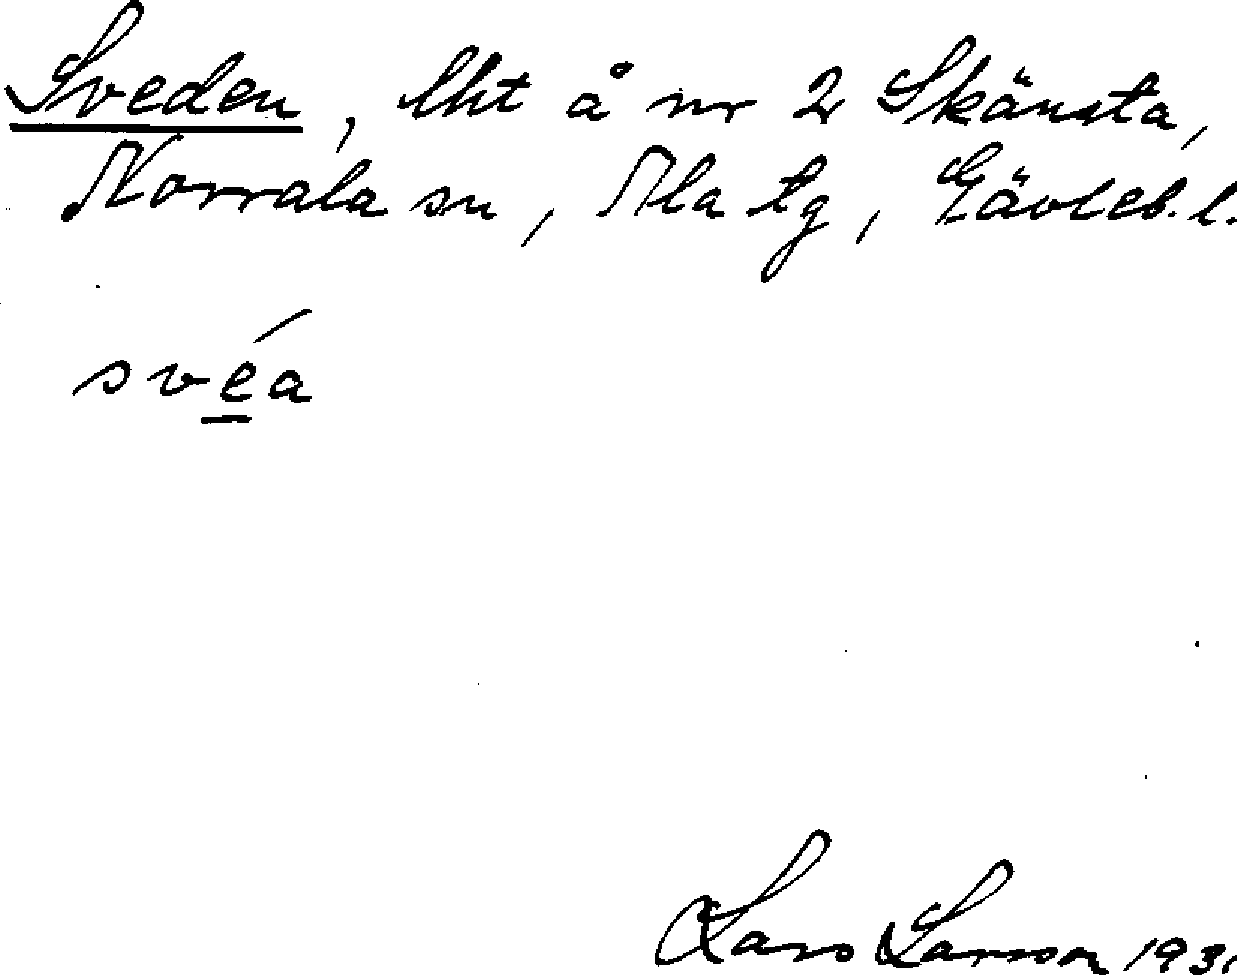 Sveden, lht å nr 2 Skänsta,
Norrala sn, Ala tg, Gävleb. l.
svéa
Lars Larson 1931